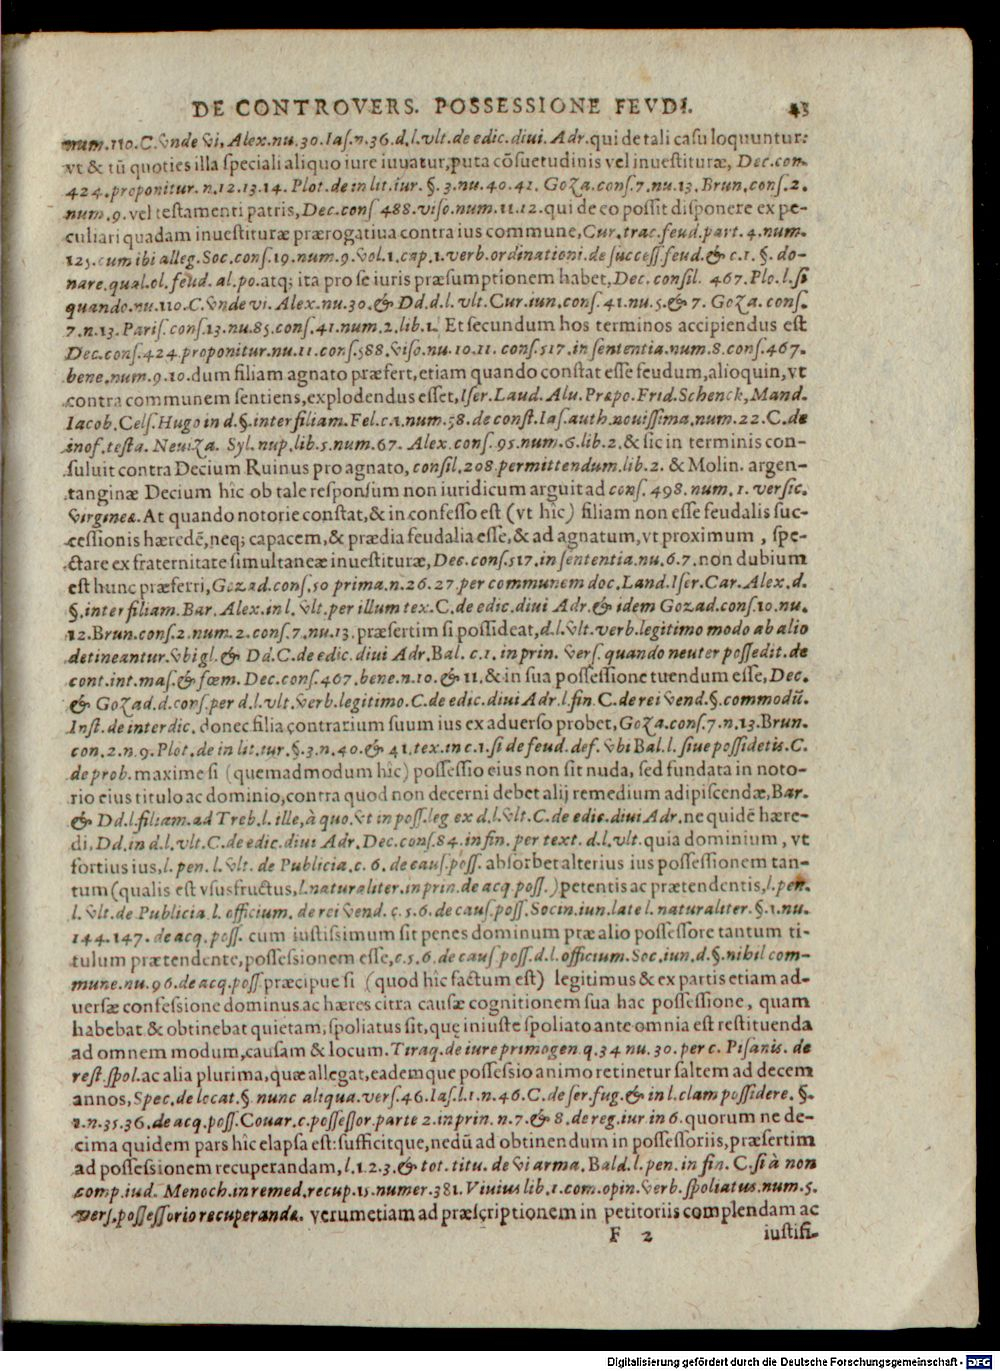 DE CONTROVERS. POSSESSIONE FEVDI. 43
num.110.C.vnde vi, Alex.nu.30.Ias.n.36.d.l.vlt.de edic.diui. Adr.qui de tali casu loquuntur:
vt & tū quoties illa speciali aliquo iure iuuatur,puta cōsuetudinis vel inuestituræ, Dec.con.
424.proponitur. n.12.13.14. Plot.de in lit.iur. §.3.nu.40.41. Goza.cons.7.nu.13. Brun.cons.2.
num.9.vel testamenti patris,Dec.cons 488.viso.num.11.12.qui de eo possit disponere ex pe-
culiari quadam inuestituræ prærogatiua contra ius commune,Cur.trac.feud.part.4.num.
125.cum ibi alleg.Soc.cons.19.num.9.vol.1.cap.1.verb.ordinationi.de success.feud.& c.1.§.do-
nare.qual.ol.feud. al.po.atq; ita pro se iuris præsumptionem habet,Dec.consil. 467.Plo.l.si
quando.nu.110.C.vnde vi. Alex.nu.30.& Dd.d.l. vlt.Cur.iun.cons.41.nu.5.& 7. Goza.cons.
7.n.13. Paris.cons.13.nu.85.cons.41.num.2.lib.1. Et secundum hos terminos accipiendus est
Dec.cons.424.proponitur.nu.11.cons.588.viso.nu.10.11. cons.517.in sententia.num.8.cons.467.
bene.num.9.10.dum filiam agnato præfert,etiam quando constat esse feudum,alioquin,vt
contra communem sentiens,explodendus esset,Iser.Laud. Alu.Præpo.Frid.Schenck,Mand.
Iacob.Cels.Hugo in d.§.inter filiam.Fel.c.1.num.58.de const.Ias.auth.nouissima.num.22.C.de
inof.testa. Neuiza. Syl.nup.lib.5.num.67. Alex.cons.95.num.6.lib.2.& sic in terminis con-
suluit contra Decium Ruinus pro agnato, consil.208.permittendum.lib.2. & Molin. argen-
tanginæ Decium hîc ob tale responsum non iuridicum arguit ad cons.498.num.1.versic.
Virginea.At quando notorie constat,& in confesso est (vt hîc) filiam non esse feudalis suc-
cessionis hæredē,neq; capacem,& prædia feudalia esse,& ad agnatum,vt proximum, spe-
ctare ex fraternitate simultaneæ inuestituræ,Dec.cons.517.in sententia.nu.6.7.non dubium
est hunc præferri,Gozad.cons.50 prima.n.26.27.per communem doc.Land.Iser.Car.Alex.d.
§.inter filiam.Bar. Alex.in l.vlt.per illum tex.C.de edic.diui Adr.& idem Gozad.cons.10.nu.
12.Brun.cons.2.num.2.cons.7.nu.13.præsertim si possideat,d.l.vlt.verb.legitimo modo ab alio
detineantur.vbi gl.& Dd.C.de edic.diui Adr.Bal. c.1.in prin. vers.quando neuter possedit.de
cont.int.mas.& fœm. Dec.cons.467.bene.n.10.& 11.& in sua possessione tuendum esse,Dec.
& Gozad.d.cons.per d.l.vlt.verb.legitimo.C.de edic.diui Adr.l.fin.C.de rei vend.§.commodū.
Inst.de interdic.donec filia contrarium suum ius ex aduerso probet,Goza.cons.7.n.13.Brun.
con.2.n.9.Plot.de in lit.iur.§.3.n.40.& 41.tex.in c.1.si de feud.def.vbi Bal.l.siue possidetis.C.
de prob.maxime si (quemadmodum hîc) possessio eius non sit nuda, sed fundata in noto-
rio eius titulo ac dominio,contra quod non decerni debet alij remedium adipiscendæ,Bar.
& Dd.l.filiam.ad Treb.l.ille,à quo.vt in poss.leg ex d.l.vlt.C.de edic.diui Adr.ne quidē hære-
di,Dd.in d.l.vlt.C.de edic.diui Adr.Dec.cons.84.in fin.per text.d.l.vlt.quia dominium, vt
fortius ius,l.pen.l.vlt. de Publicia.c.6.de caus.poss.absorbet alterius ius possessionem tan-
tum (qualis est vsusfructus,l.naturaliter.in prin.de acq.poss.)petentis ac prætendentis,l.pen.
l.vlt.de Publicia l.officium.de rei vend.c.5.6.de caus.poss.Socin.iun.late l.naturaliter.§.1.nu.
144.147.de acq.poss. cum iustissimum sit penes dominum præ alio possessore tantum ti-
tulum prætendente,possessionem esse,c.5.6.de caus.poss.d.l.officium.Soc.iun.d.§.nihil com-
mune.nu.96.de acq.poss.præcipue si (quod hîc factum est) legitimus & ex partis etiam ad-
uersæ confessione dominus ac hæres citra causæ cognitionem sua hac possessione, quam
habebat & obtinebat quietam,spoliatus sit,que iniuste spoliato ante omnia est restituenda
ad omnem modum,causam & locum.Tiraq.de iure primogen.q.34 nu.30.per c. Pisanis. de
rest.spol.ac alia plurima,quæ allegat,eademque possessio animo retinetur saltem ad decem
annos,Spec.de locat.§.nunc aliqua.vers.46.Ias.l.1.n.46.C.de ser.fug.& in l.clam possidere.§.
1.n.35.36.de acq.poss.Couar.c.possessor.parte 2.in prin.n.7.& 8.de reg.iur in 6.quorum ne de-
cima quidem pars hîc elapsa est:sufficitque,nedū ad obtinendum in possessoriis,præsertim
ad possessionem recuperandam,l.1.2.3.& tot.titu.de vi arma.Bald.l.pen.in fin.C.si à non
comp.iud. Menoch.in remed.recup.15.numer.381.Viuius lib.1.com.opin.verb.spoliatus.num.5.
vers.possessorio recuperandæ. verumetiam ad præscriptionem in petitoriis complendam ac
F 2 iustifi-
Digitalisierung gefördert durch die Deutsche Forschungsgemeinschaft - DFG